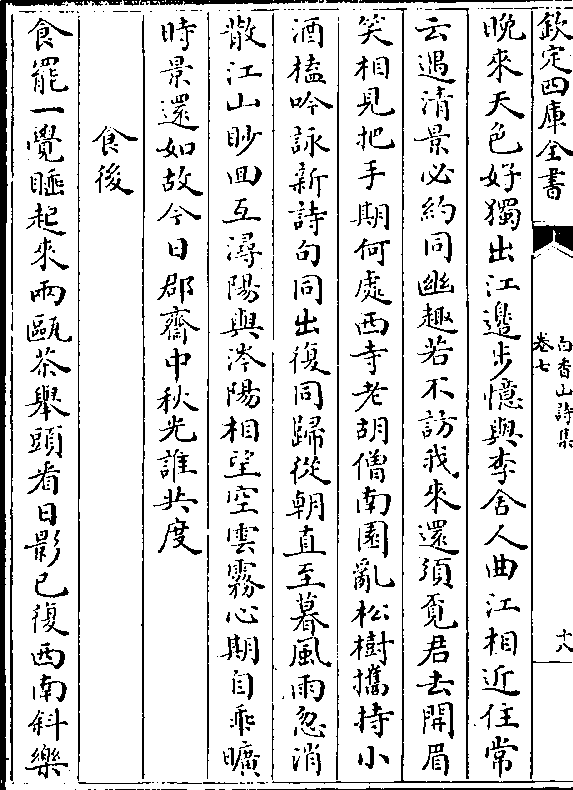 欽定四庫全書
白香山詩集
卷七
十八
晚來天色好獨出江邊步憶與李舍人曲江相近住常
云遇清景必約同幽趣若不訪我來還須覔君去開眉
笑相見把手期何處西寺老胡僧南園亂松樹攜持小
酒榼吟詠新詩句同出復同歸從朝直至暮風雨忽消
散江山眇回互潯陽與涔陽相望空雲霧心期自乖曠
時景還如故今日郡齋中秋光誰共度
食後
食罷一覺睡起來兩甌茶舉頭看日影已復西南斜樂